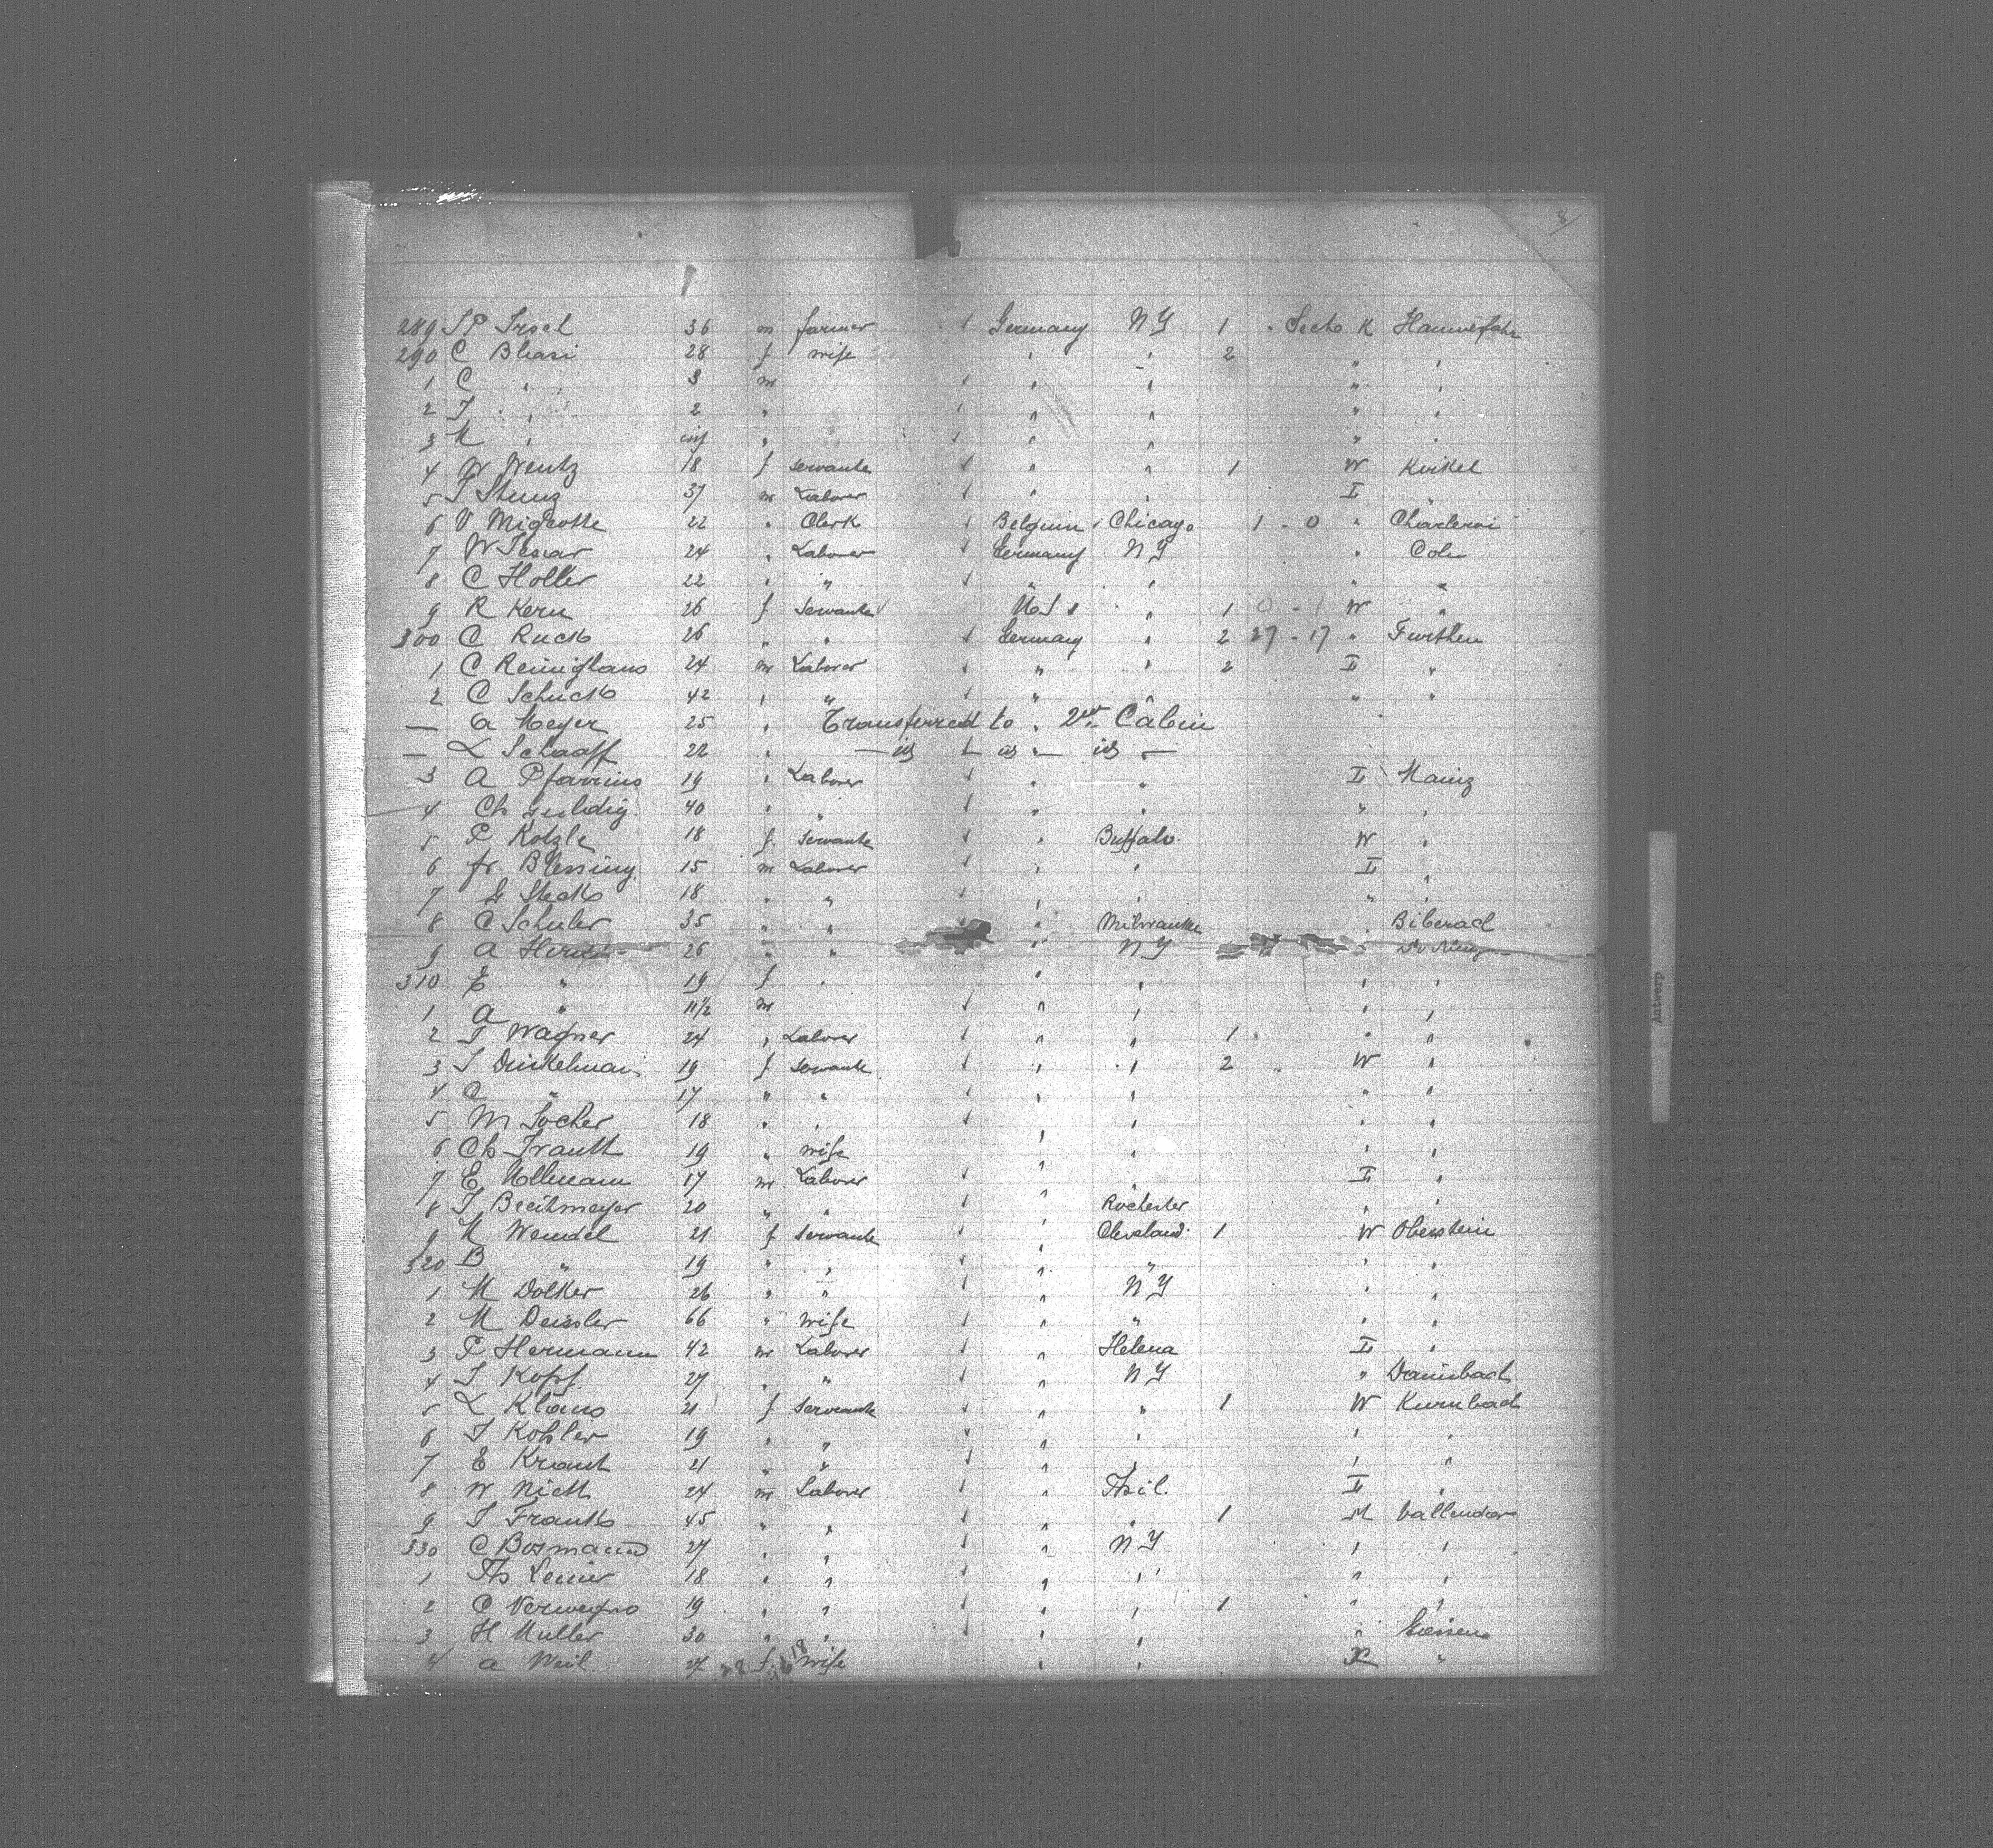 8/
289 J P Irsel 36 m farmer Germany N Y 1 K
290 C Blasi 28 f wife " " 2 " "
1 C " 3 m " " " "
2 J " 2 " " " " "
3 M " inf " " " " "
4 W Wentz 18 f servante " " 1 W Kirkel
5 J Stunz 37 m Laborer " " II "
6 V Migeotte 22 " Clerk Belgium Chicago 1 - 0 " Charleroi
7 W 24 " Laborer Germany N Y " Coln
8 C Holler 22 " " " " " "
9 R Kern 26 f Servante U S " 1 0 - 1 W "
300 C Ruck 26 " " Germany " 2 27 - 17 " Furthen
1 C Reinighaus 24 m Laborer " " 2 II "
2 C Schuck 42 " " " " " "
— A Meyer 25 " Transferred to 2nd Cabin
— L Schaaff 22 " — id — id — id —
3 A Pfarrius 19 " Laborer " " II Mainz
4 Ch Guldig 40 " " " " " "
5 P Kotzle 18 f Servante " Buffalo W "
6 fr Blessing 15 m Laborer " " II "
7 G Steck 18 " " " " " "
8 C Schuler 35 " " " Milwaukee " Biberach
9 A 26 " " " N Y
310 E " 19 f " " " " "
1 A " 11 1/2 m " " " "
2 J Wagner 24 " Laborer " " 1 " "
3 J Dinkelman 19 f servante " " 2 W "
4 C " 17 " " " " " "
5 M Locher 18 " " " " " "
6 Ch Trautt 19 " wife " " " "
7 E Hollmann 17 m Laborer " " II "
8 J Breitmeyer 20 " " " Rochester " "
9 M Wendel 21 f servante " Cleveland 1 W Oberstein
320 B " 19 " " " " " "
1 M Dolker 26 " " " N Y " "
2 M Deissler 66 " wife " " " "
3 P Hermann 42 m Laborer " Helena II "
4 J Kopf 27 " " " N Y " Dannbach
5 L Klaus 21 f Servante " " 1 W Kurnbach
6 J Kohler 19 " " " " " "
7 E Kraut 21 " " " " " "
8 W Nick 24 m Laborer " Phil. II "
9 J Frank 45 " " " " 1 M Vallendar
330 C Bosmann 27 " " " N Y " "
1 Th Leinier 18 " " " " " "
2 C 19 " " " " 1 " "
3 H Muller 30 " " " " " Giessen
4 A Weil 27 f wife " " K "
Antwerp